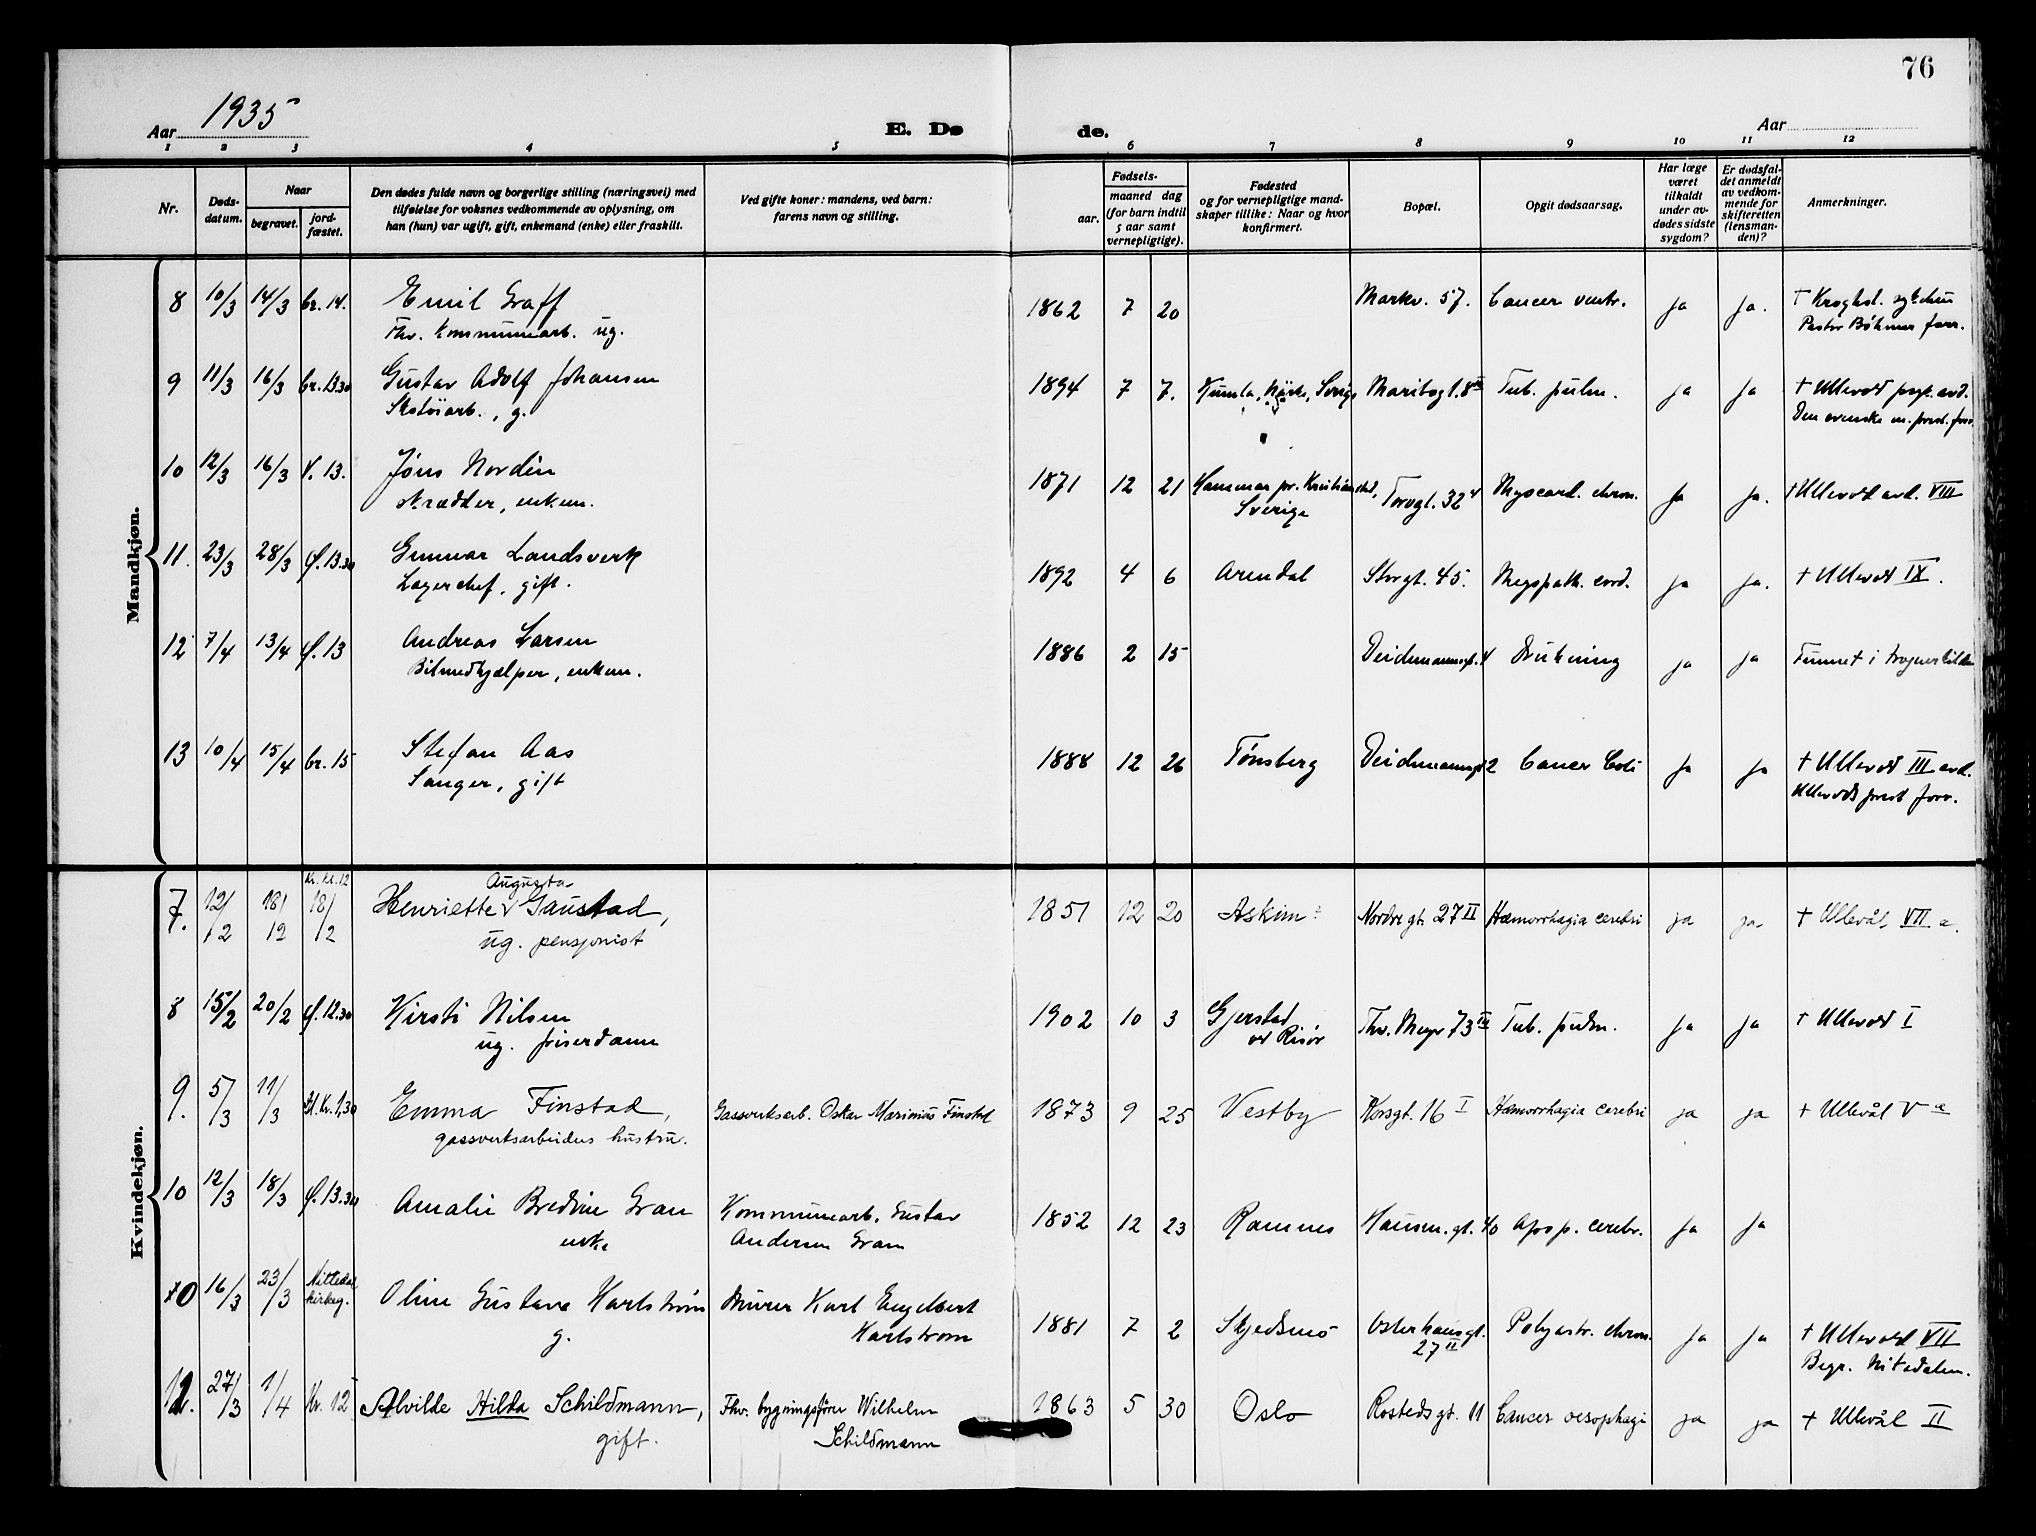 76
Aar 1935
E. Dø
de.
Aar
1 2 3 4 5 6 7 8 9 10 11 12
Nr.
Døds-
datum.
Naar
begravet.
jord-
fæstet.
Den dødes fulde navn og borgerlige stilling (næringsvei) med
tilføielse for voksnes vedkommende av oplysning, om
han (hun) var ugift, gift, enkemand (enke) eller fraskilt.
Ved gifte koner: mandens, ved barn:
farens navn og stilling.
Fødsels-
aar.
maaned dag
(for barn indtil
5 aar samt
vernepligtige).
Fødested
og for vernepligtige mand-
skaper tillike: Naar og hvor
konfirmert.
Bopæl.
Opgit dødsaarsag.
Har læge
været
tilkaldt
under av-
dødes sidste
sygdom?
Er dødsfal-
det anmeldt
av vedkom-
mende for
skifteretten
(lensman-
den)?
Anmerkninger.
Mandkjøn.
8 10/3 14/3 Cr. 14. Emil Graff 1862 7 20 Markv. 57. Cancer ventr. ja ja. † Kroghst. sykehus
Fhv. Kommunearb. ug. Pastor Böhmer forr.
9 11/3 16/3 Cr. 13.30 Gustav Adolf Johansen 1894 7 7. Kumla, Närke, Sverige Maribogt. 8 Tub. pulm. ja ja † Ullevål psyk. avd.
Skotöiarb., g. Den svenske m. prest. forr.
10 12/3 16/3 V. 13. Jöns Nordin 1871 12 21 Hammar pr. Kristianstad, Torvgt. 32 Myocard. chron. ja ja. † Ullevål avd. VIII
skrædder, enkem. Sverige
11. 23/3 28/3 Ø. 13.30 Gunnar Landsverk 1892 4 6 Arendal Storgt. 45. Myopath. cord. ja ja. † Ullevål IX.
Lagerchef, gift.
12 7/4 13/4 Ø. 13 Andreas Larsen 1886 2 15 Deichmannsgt. 4 Drukning ja ja Funnet i
Bilmedhjælper, enkem.
13 10/4 15/4 Cr. 15 Stefan Aas 1888 12 26 Tønsberg Deichmannsgt 2 Cancer Coli ja ja † Ullevål III avd.
Sanger, gift Ullevåls prest forr.
Kvindekjøn.
Kr. kl. 12
Augusta
7. 12/2 18/2 18/2 Henriette Gaustad, 1851 12 20 Askim Nordre gt. 27 II Hæmorrhagia cerebri ja ja. † Ullevål VII a.
ug. pensjonist
8 15/2 20/2 Ø. 12.30 Kirsti Nilsen 1902 10 3 Gjerstad Thv. Meyr 73 III Tub. pulm. ja ja † Ullevål I
ug. friserdame v/ Risör
9. 5/3 11/3 Bl. Kr. 1,30 Emma Finstad, Gassverksarb. Oskar Marinius Finstad 1873 9 25 Vestby Korsgt. 16 I Hæmorrhagia cerebri ja ja † Ullevål V a
gassverksarbeiders hustru.
10 12/3 18/3 Ø. 13.30 Amalie Bredine Gran Kommunearb. Gustav 1852 12 23 Ramnes Hausm. gt. 40 Apop. cerebr. ja ja
enke Andersen Gran
10 16/3 23/3 Nittedal kirkeg. Oline Gustava Karlström Murer Karl Engelbert 1881 7 2 Skjedsmo Osterhausgt. Polyartr. chron. ja ja † Ullevål VII
g. Karlstrom 27 II Begr. Nitedalen.
12. 27/3 1/4 Kr. 12 Alvilde Hilda Schildmann, Fhv. bygningsfører Wilhelm 1863 5 30 Oslo Rostedsgt. 11 Cancer oesophagi ja ja † Ullevål II
gift. Schildmann